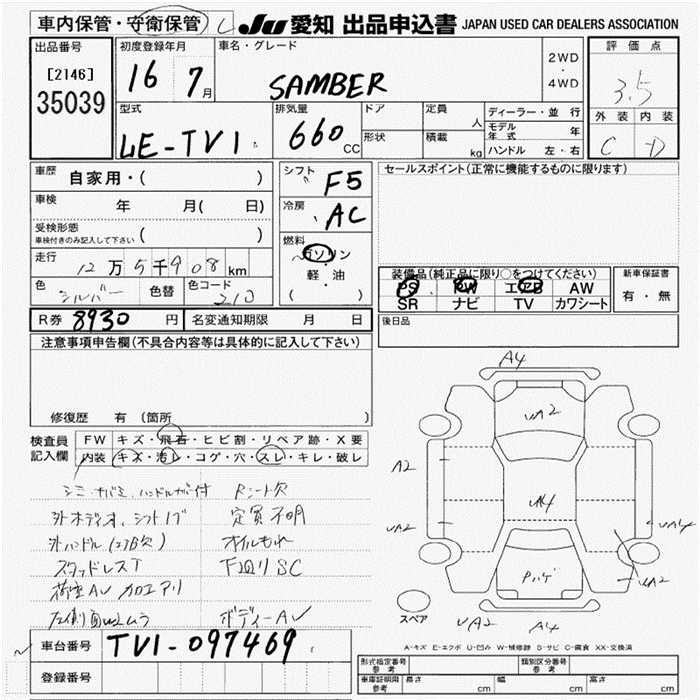 車内保管・守衛保管 JU 愛知 出品申込書 JAPAN USED CAR DEALERS ASSOCIATION
出品番号
[2146]
35039
初度登録年月
16 7月
車名・グレード
SAMBER
2WD
・
4WD
評価点
3.5
外装 内装
C D
型式
LE-TV1
排気量
660 CC
ドア
形状
定員 人
積載 kg
ディーラー・並行
モデル年式 年
ハンドル 左・右
車歴 自家用・( )
車検 年 月( 日)
受検形態
車検付きのみ記入して下さい ( )
走行 12万5千908km
色 シルバー 色替 色コード 210
シフト F5
冷房 AC
燃料
ガソリン
・
軽・油
( )
セールスポイント(正常に機能するものに限ります)
装備品(純正品に限り○をつけてください)
PS PW エアB AW
SR ナビ TV カワシート
新車保証書
有・無
R券 8930円 名変通知期限 月 日
後日品
注意事項申告欄(不具合内容等は具体的に記入して下さい)
修復歴 有(箇所 )
検査員記入欄
FW キズ・飛石・ヒビ割・リペア跡・X要
内装 キズ・汚レ・コゲ・穴・スレ・キレ・破レ
定員不明
オイルもれ
スタッドレスT 下廻りSC
加工アリ
A4
UA2
A2
UA4
UA2
UA4
Pハゲ
UA2
スペア
UA2
A4
A-キズ E-エクボ U-凹み W-補修跡 S-サビ C-腐食 XX-交換済
車台番号 TV1-097469
登録番号
形式指定番号
参考
類別区分番号
参考
車庫証明用
参考
長さ cm 幅 cm 高さ cm